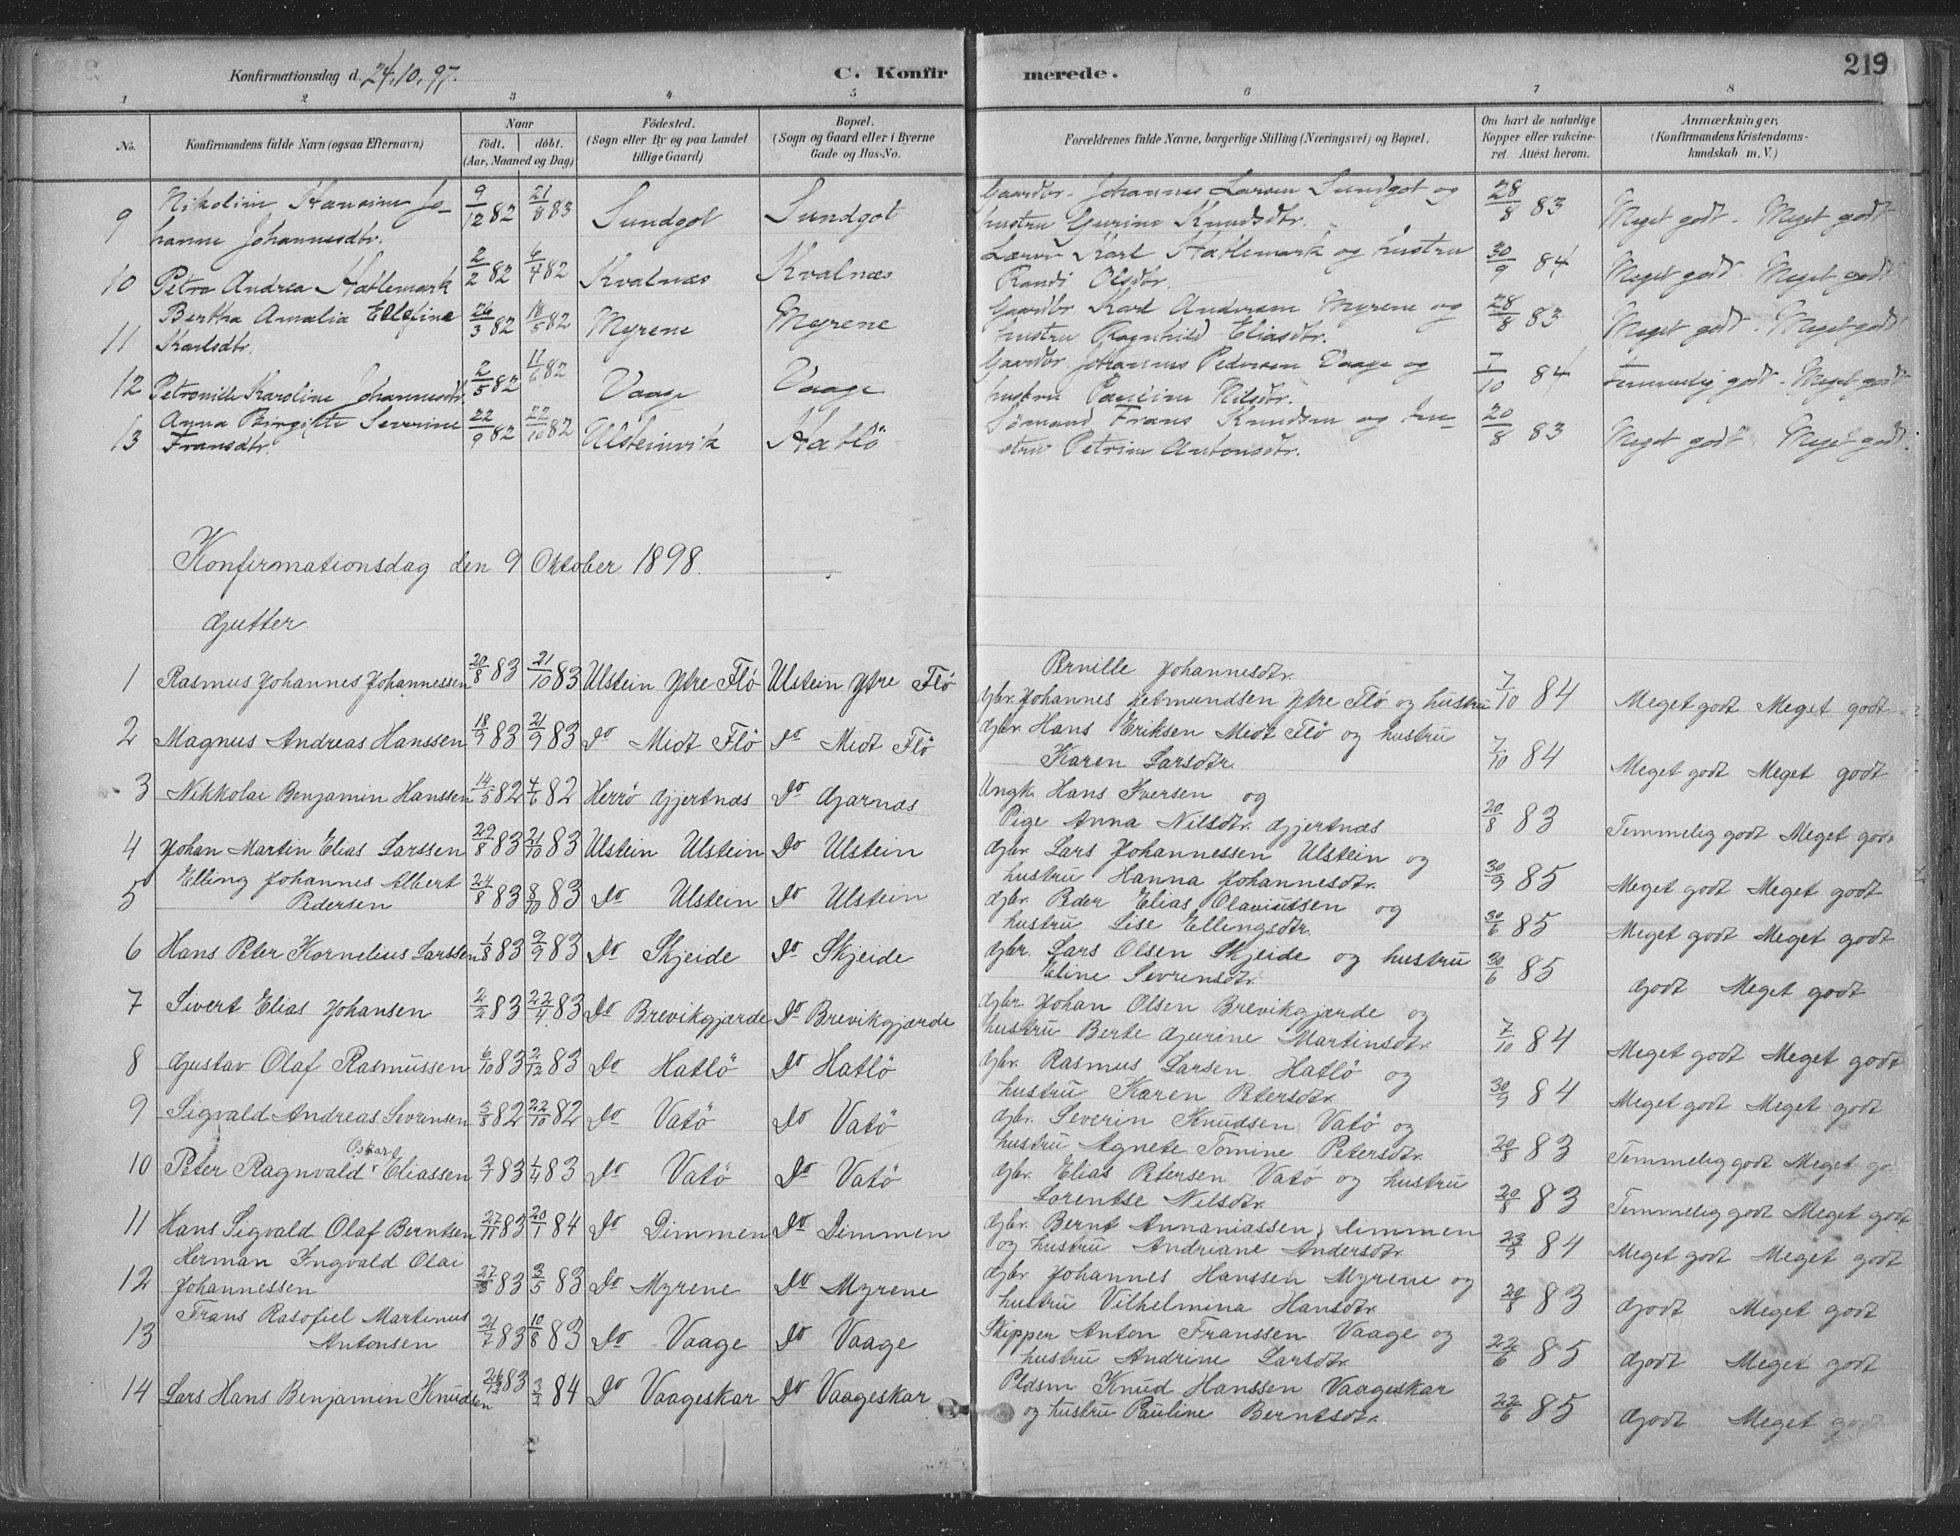 Konfirmationsdag d. 24.10.97. C. Konfirmerede. 219
1 2 3 4 5 6 7 8
No. Konfirmandens fulde Navn (ogsaa Efternavn) Naar födt. döbt. (Aar, Maaned og Dag) Födested. (Sogn eller By og paa Landet tillige Gaard) Bopæl. (Sogn og Gaard eller i Byerne Gade og Hus-No. Forældrenes fulde Navne, borgerlige Stilling (Næringsvei) og Bopæl. Om havt de naturlige Kopper eller vakcineret. Attest herom. Anmærkninger, (Konfirmandens Kristendomskundskab m. V.)
9 Nikoline Hansine Jo- 9/12 82 21/8 83 Sundgot Sundgot Gaardbr. Johannes Larsen Sundgot og 28/8 83 Meget godt. Meget godt
hanne Johannesdtr. hustru Gurine Knudsdtr.
10 Petra Andrea Hatlemark 2/2 82 4/4 82 Kvalnæs Kvalnæs Lærer Karl Hatlemark og hustru 30/9 84 Meget godt. Meget godt
Randi Olsdtr.
11 Bertha Amalia Ellefine 26/3 82 18/5 82 Myrene Myrene Gaardbr. Karl Andersen Myrene og 28/8 83 Meget godt. Meget godt
Karlsdtr. hustru Ragnhild Eliasdtr.
12 Petronille Karoline Johannesdtr. 2/5 82 11/6 82 Vaage Vaage Gaardbr. Johannes Pedersen Vaage og 7/10 84 Temmelig godt. Meget godt
hustru Pauline Nilsdtr.
13 Anna Birgitte Severine 22/9 82 22/10 82 Ulsteinvik Hatlö Sömand Frans Knudsen og hu- 20/8 83 Meget godt. Meget godt.
Fransdtr. stru Petrine Antonsdtr.
Konfirmationsdag den 9 Oktober 1898.
Gutter
Pernille Johannesdtr.
1 Rasmus Johannes Johannessen 20/8 83 21/10 83 Ulstein Ytre Flö Ulstein Ytre Flö Gbr. Johannes Jetmundsen Ytre Flö og hustru 7/10 84 Meget godt Meget godt
2 Magnus Andreas Hanssen 18/9 83 21/9 83 Do Midt Flö Do Midt Flö Gbr. Hans Eriksen Midt Flö og hustru 7/10 84 Meget godt Meget godt
Karen Larsdtr.
3 Nikkolai Benjamin Hanssen 14/5 82 4/6 82 Herrö Gjertnæs Do Garnæs Ungk. Hans Iversen og 20/8 83 Temmelig godt Meget godt
Pige Anna Nilsdtr. Gjertnæs
4 Johan Martin Elias Larssen 29/8 83 21/10 83 Ulstein Ulstein Do Ulstein Gbr. Lars Johannessen Ulstein og 30/9 85 Meget godt Meget godt
hustru Hanna Johannesdtr.
5 Elling Johannes Albert 24/8 83 8/10 83 Do Ulstein Do Ulstein Gbr. Peder Elias Olaviussen og 30/6 85 Meget godt Meget godt
Pedersen hustru Lise Ellingsdtr.
6 Hans Peter Kornelius Larssen 1/8 83 2/9 83 Do Skjeide Do Skjeide Gbr. Lars Olsen Skjeide og hustru 30/6 85 Godt Meget godt
Eline Sevrensdtr.
7 Sivert Elias Johansen 2/2 83 22/4 83 Do Brevikgjærde Do Brevikgjærde Gbr. Johan Olsen Brevikgjærde og 7/10 84 Meget godt Meget godt
hustru Berte Gurine Martinsdtr.
8 Gustav Olaf Rasmussen 6/10 83 2/12 83 Do Hatlö Do Hatlö Gbr. Rasmus Larsen Hatlö og 30/9 84 Meget godt Meget godt
hustru Karen Petersdtr.
9 Sigvald Andreas Sevrensen 3/8 82 22/10 82 Do Vatö Do Vatö Gbr. Severin Knudsen Vatö og 20/8 83 Temmelig godt Meget go
hustru Agnete Tomine Petersdtr.
10 Peter Ragnvald Oskar Eliassen 2/7 83 1/4 83 Do Vatö Do Vatö Gbr. Elias Petersen Vatö og hustru 20/8 83 Temmelig godt Meget godt
Lorentse Nilsdtr.
11 Hans Sigvald Olaf Berntsen 27/11 83 20/1 84 Do Dimmen Do Dimmen Gbr. Bernt Annaniassen Dimmen 23/9 84 Meget godt Meget godt
og hustru Andriane Andersdtr.
12 Herman Ingvald Olai 27/3 83 3/5 83 Do Myrene Do Myrene Gbr. Johannes Hanssen Myrene og 20/8 83 Godt Meget godt
Johannessen hustru Vilhelmina Hansdtr.
13 Frans Rasofiel Martinus 21/7 83 10/8 83 Do Vaage Do Vaage Skipper Anton Franssen Vaage og 22/6 85 Godt Meget godt
Antonsen hustru Andrine Larsdtr.
14 Lars Hans Benjamen Knudsen 26/12 83 3/2 84 Do Vaageskar Do Vaageskar Pldsm Knud Hanssen Vaageskar 22/6 85 Godt Meget godt
og hustru Pauline Berntsdtr.